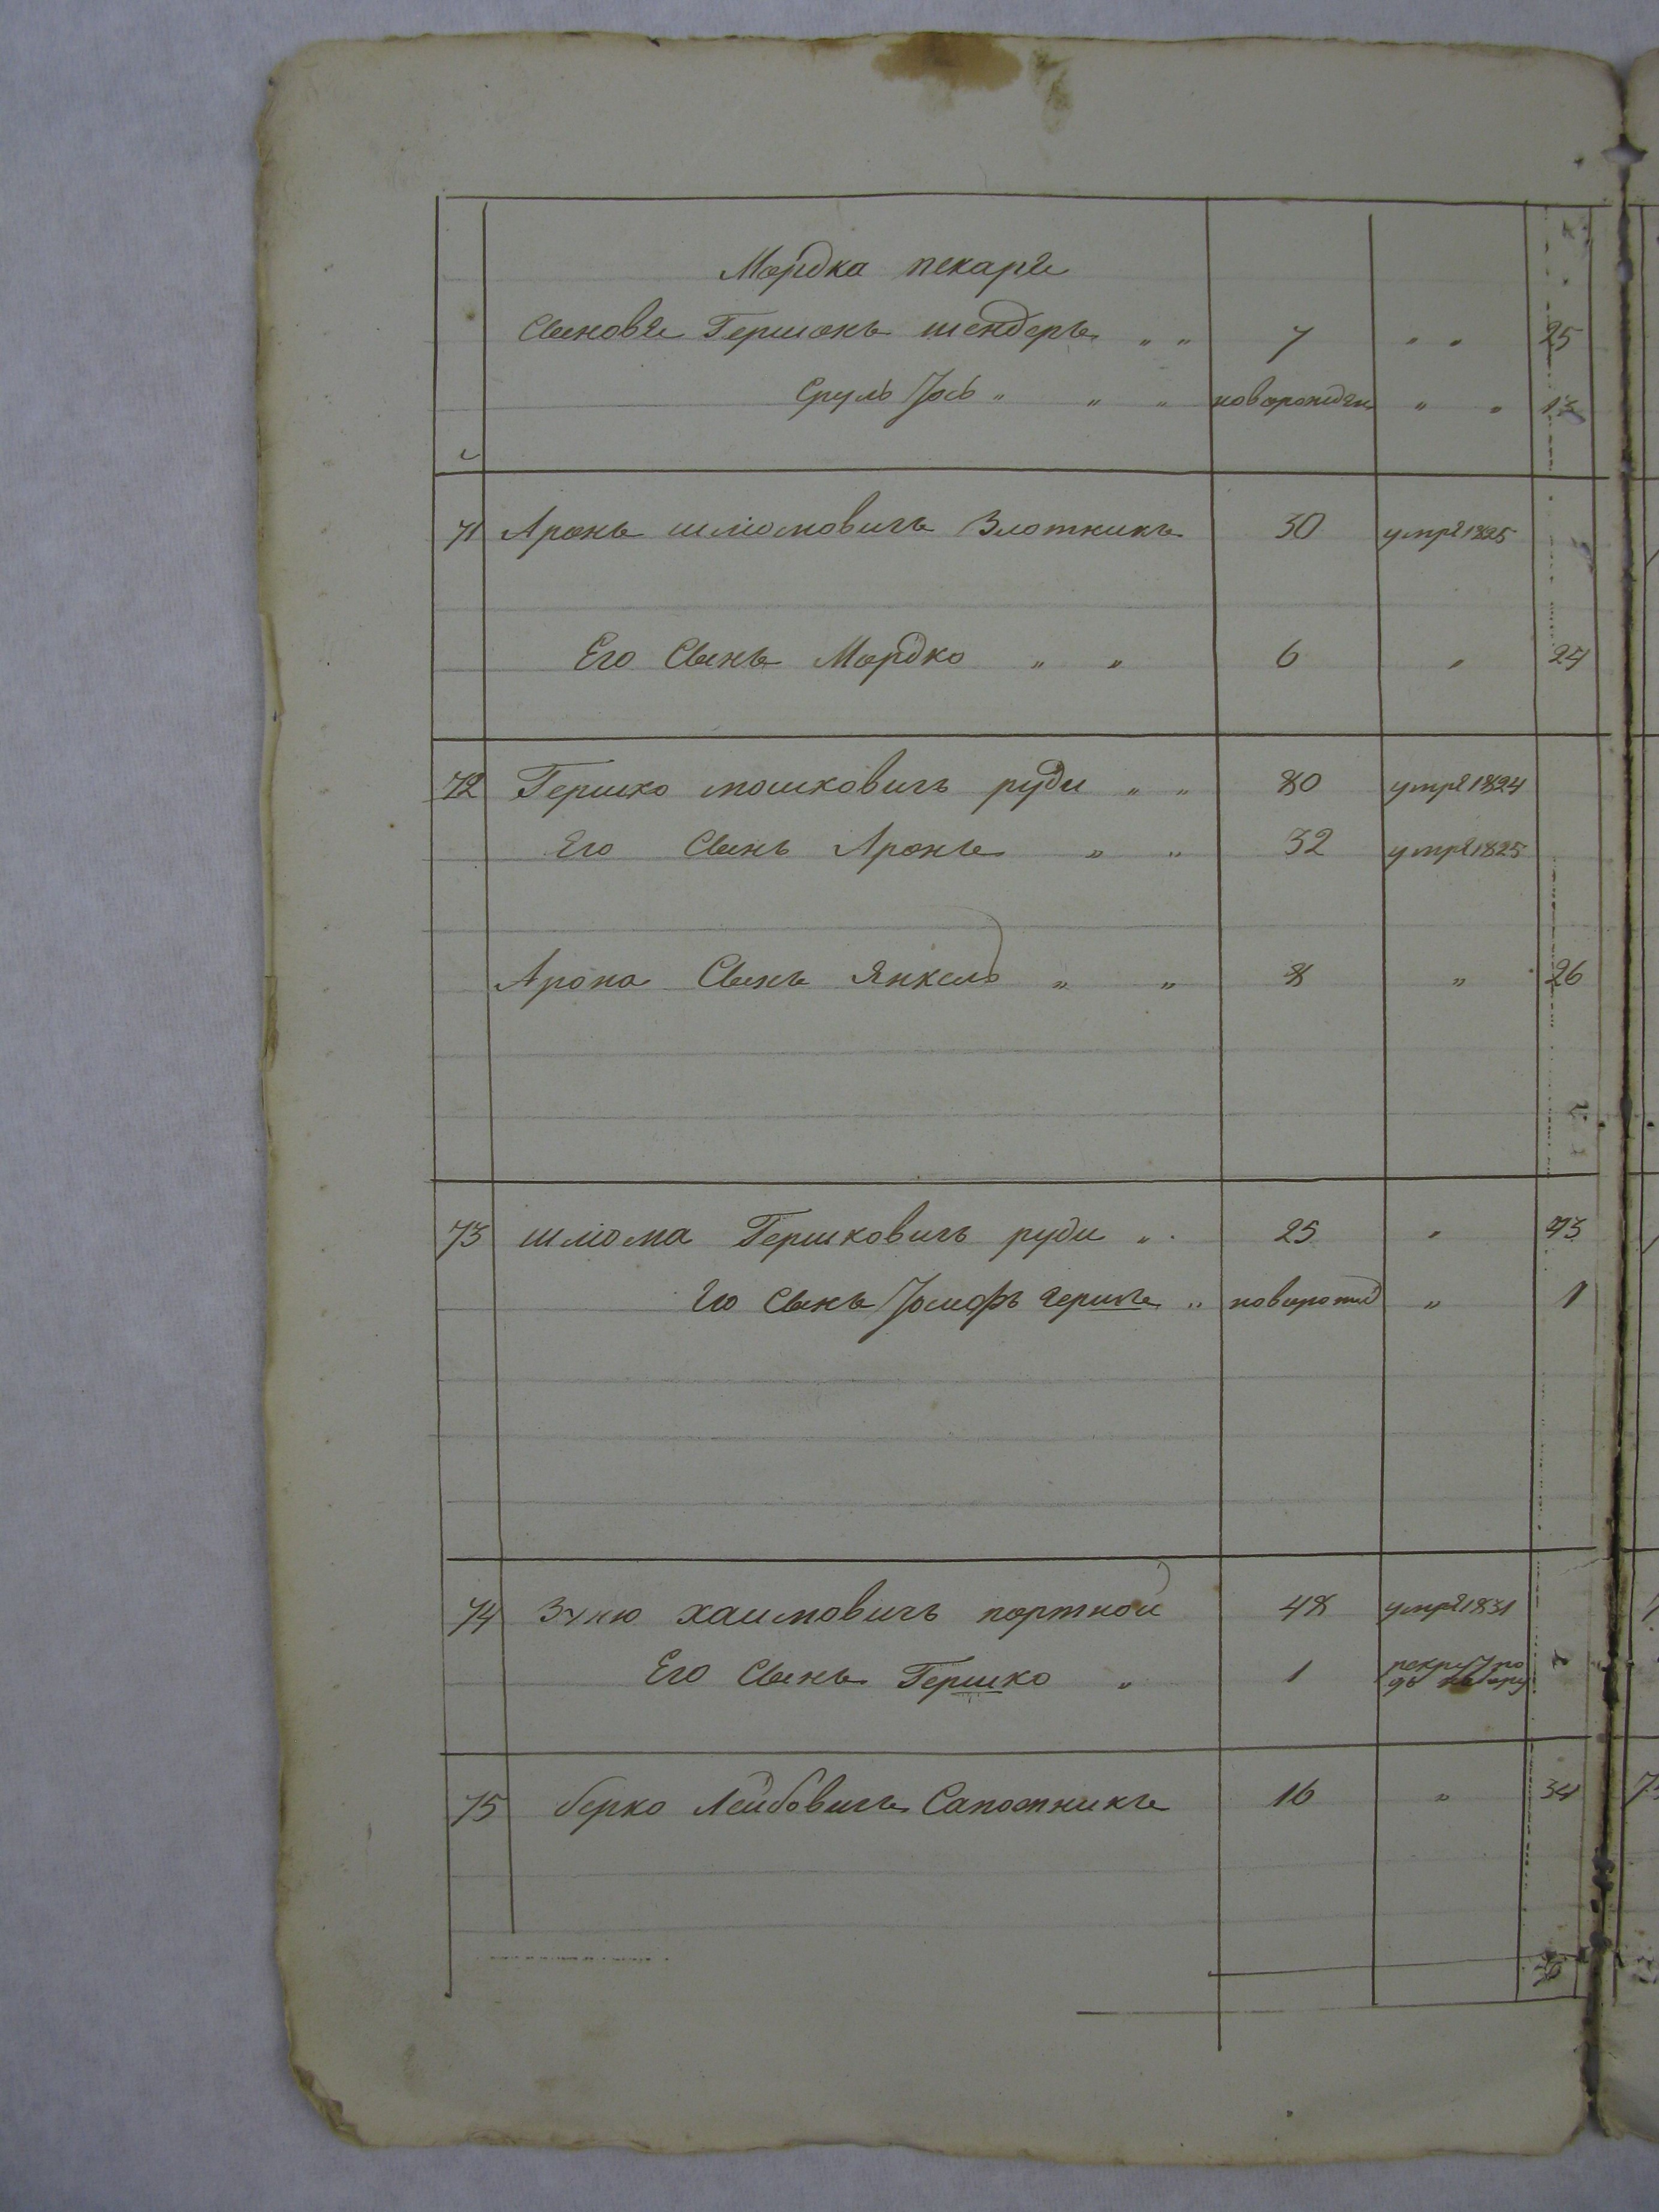 Мордка пекаръ
Сыновья Гершонъ шендеръ „ „ 7 „ „ 25
Сруль Іось „ „ „ новорожден „ „ 13
71 Аронъ шліомовичъ Злотникъ 30 умре 1825
Его Сынъ Мордко „ „ 6 „ 24
72 Гершко мошковичъ руди „ „ 80 умре 1824
Его Сынъ Аронъ „ „ 32 умре 1825
Арона Сынъ Янкель „ „ 8 „ 26
73 шліома Гершковичъ руди „ 25 „ 43
Его Сынъ Іосифъ гершъ „ новорожд „ 1
74 хаимовичъ портной 48 умре 1831
Его Сынъ Гершко „ 1
75 берко Лейбовичъ Сапожникъ 16 „ 34